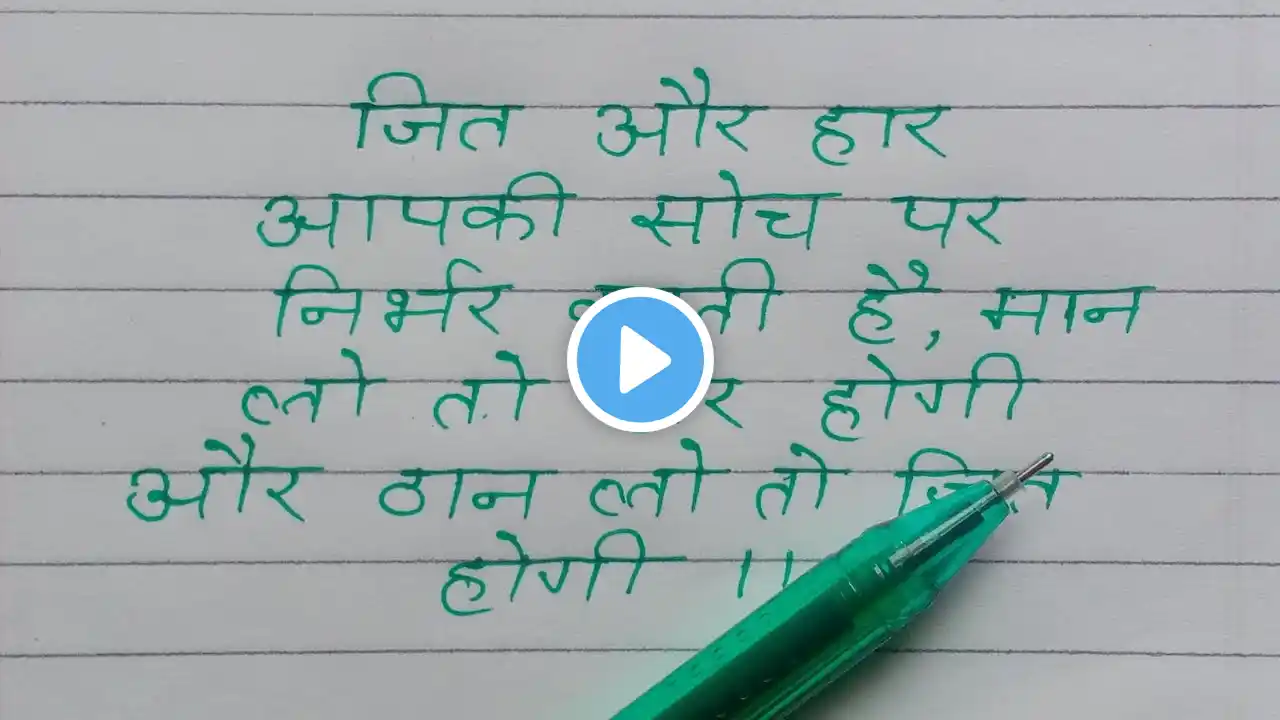 जित और हार
आपकी सोच पर
निर्भर है, मान
लो तो होगी
और ठान लो तो जित
होगी ।।